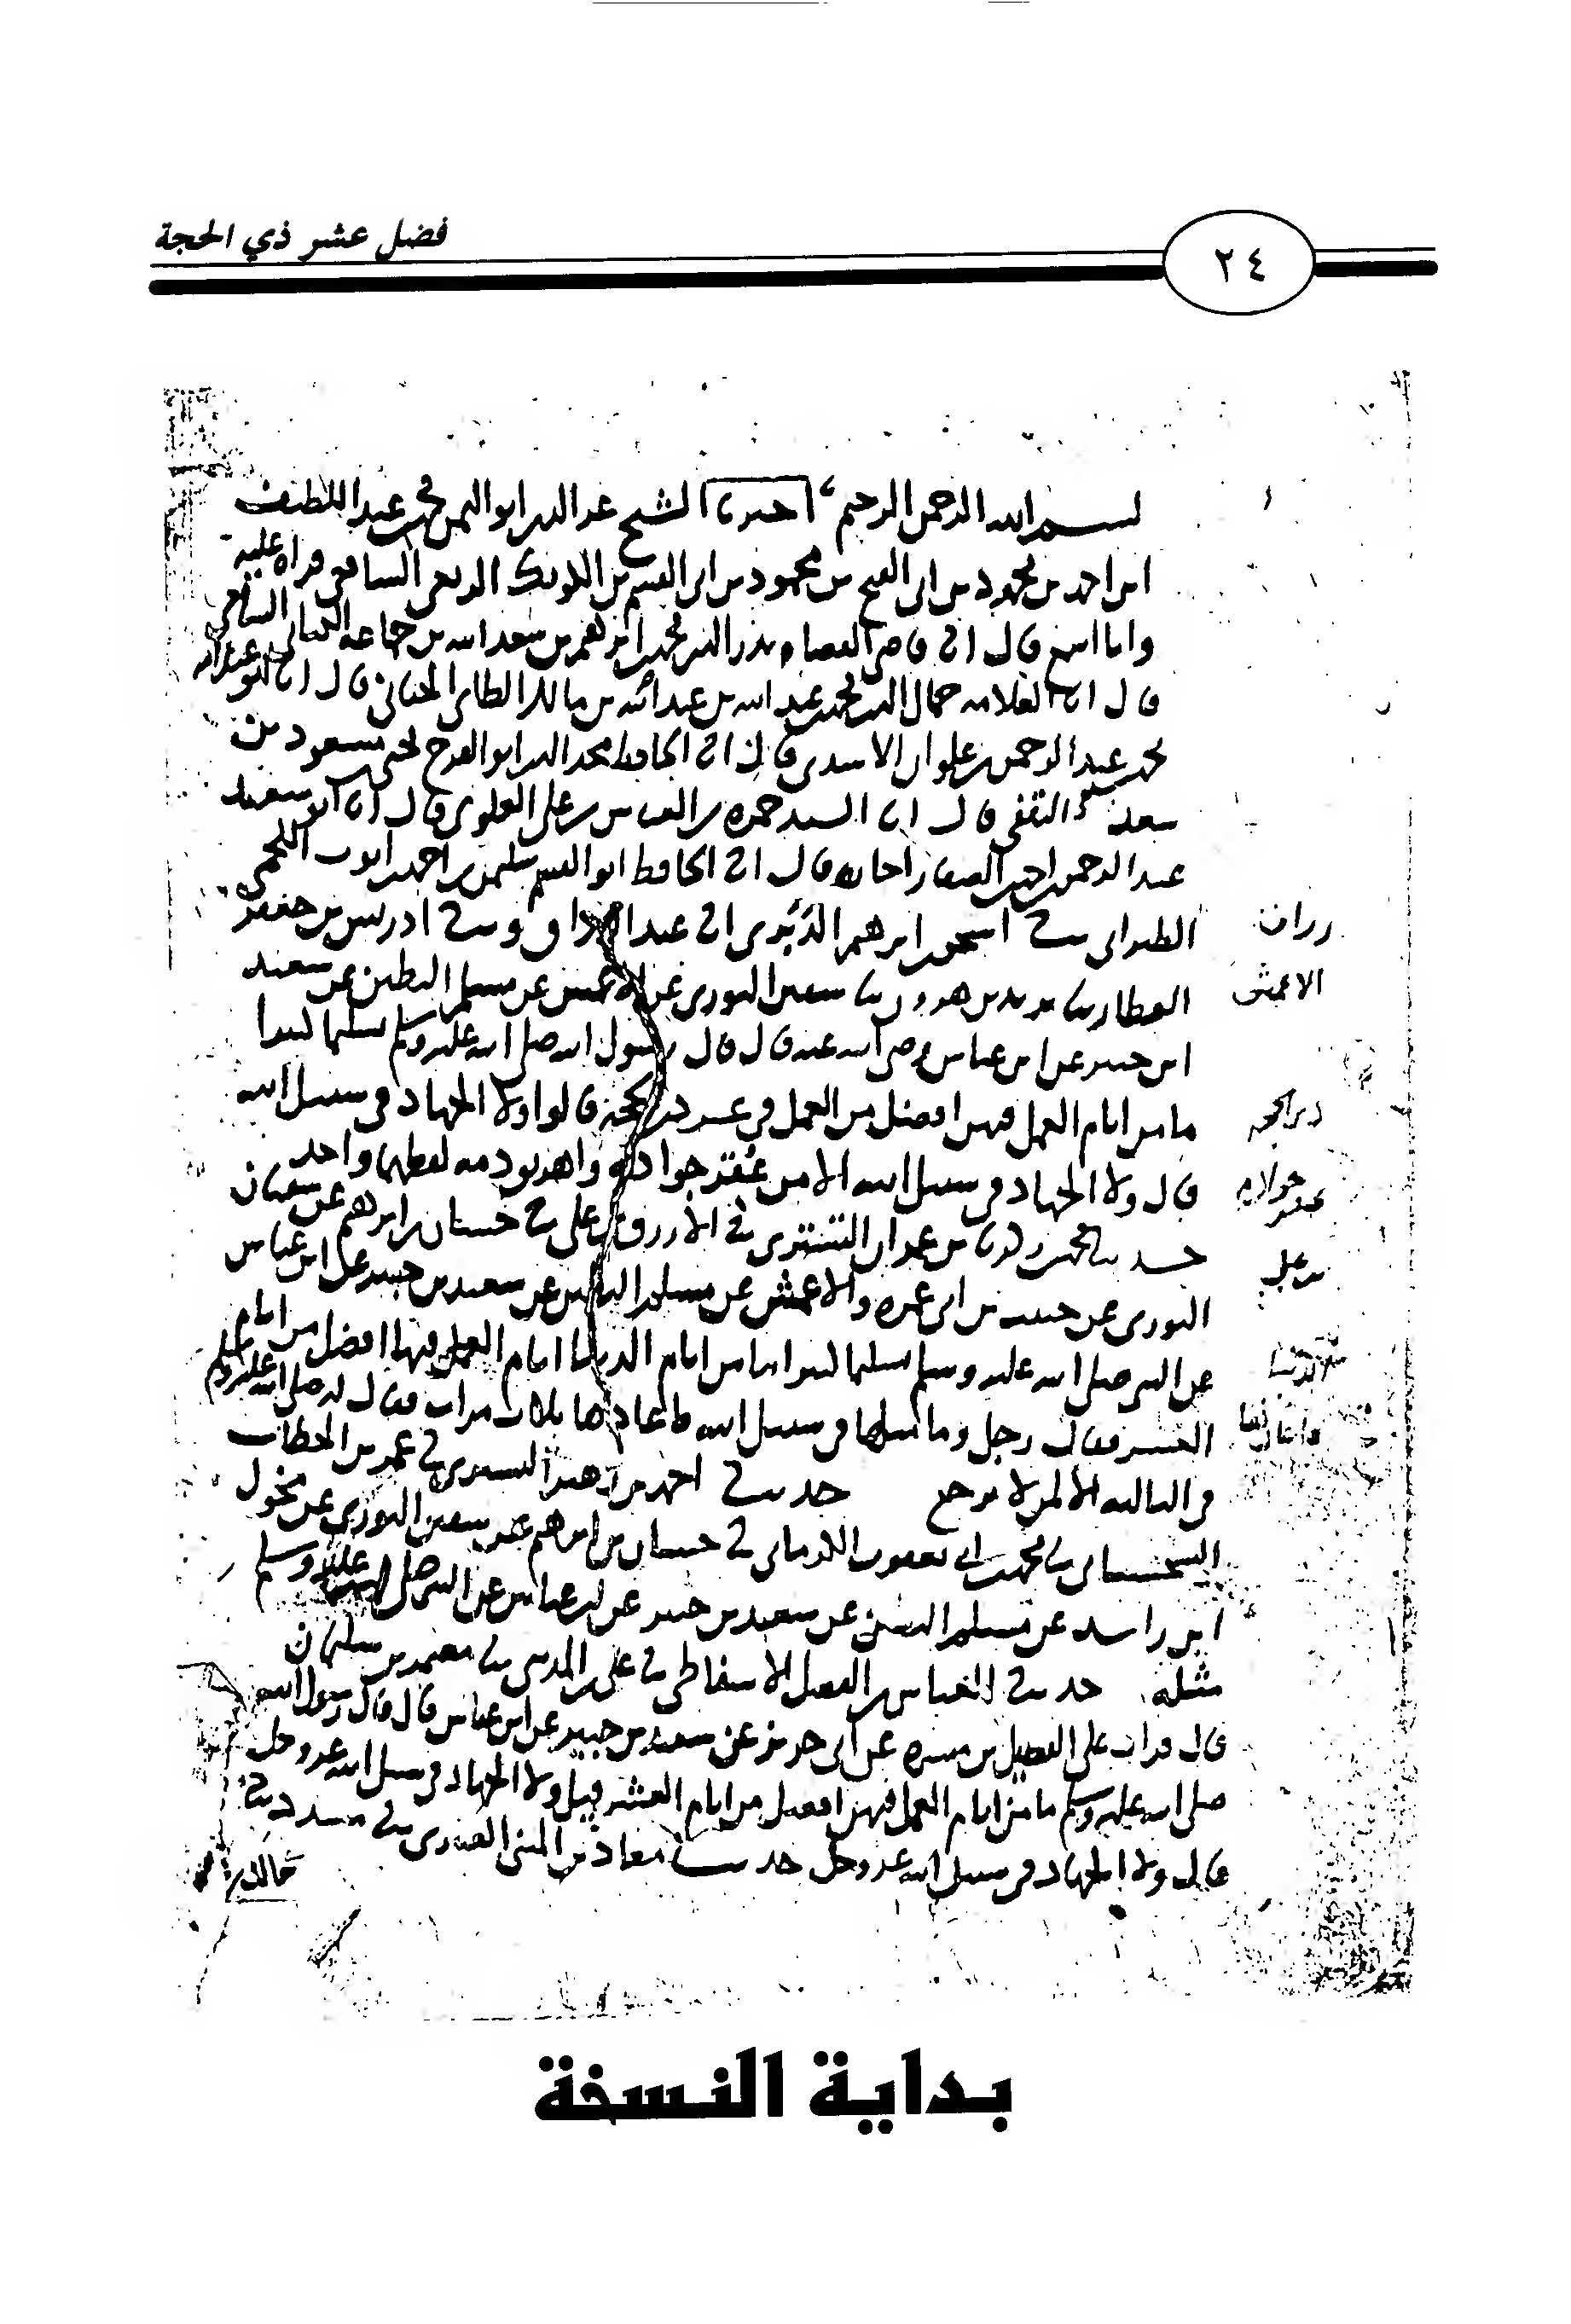 فضل عشر ذي الحجة
٢٤
بسم الله الرحمن الرحيم اخبرنا الشيخ عز الدين ابو اليمن محمد بن عبد اللطيف
ابن احمد بن محمود بن ابي الفتح بن محمود بن ابي القسم بن الكويك الربعي الشافعي قراه عليه
وانا اسمع قال انا قاضي القضاه بدر الدين محمد بن ابرهيم بن سعد الله بن جماعه الكناني الشافعي
قال انا العلامه جمال الدين محمد بن عبد الله بن عبد الله بن مالك الطائي الجياني قال انا ابو عبد الله
محمد بن عبد الرحمن بن علوان الاسدي قال انا الحافظ مجد الدين ابو الفرج يحيى بن مسعود بن
سعد الثقفي قال انا السيد حمزه بن العباس بن علي العلوي قال انا ابو سعيد
عبد الرحمن بن احمد الصفار اجازه قال انا الحافظ ابو القسم سليمن بن احمد بن ايوب اللخمي
الطبراني ثنا اسحق بن ابرهيم الدبري انا عبد الرزاق وثنا ادريس بن جعفر
العطار ثنا يزيد بن هرون ثنا سفين الثوري عن الاعمش عن مسلم البطين عن سعيد
الاعمش
ابن جبير عن ابن عباس رضي الله عنه قال قال رسول الله صلى الله عليه وسلم تسليما كثيرا
ما من ايام العمل فيهن افضل من العمل في عشر ذي الحجه قالوا ولا الجهاد في سبيل الله
ذي الحجه
قال ولا الجهاد في سبيل الله الا من عقر جواده واهريق دمه لفظهما واحد
عقر جواده
حدثنا محمد بن عبدان التستري ثنا الازرق بن علي ثنا حسان بن ابرهيم عن سفيان
بن علي
الثوري عن حبيب بن ابي عمره والاعمش عن مسلم البطين عن سعيد بن جبير عن ابن عباس
عن النبي صلى الله عليه وسلم تسليما كثيرا ما من ايام الدنيا ايام العمل فيها افضل من ايام
العشر فقال رجل وما مثلها في سبيل الله فاعادها ثلاث مرات فقال له صلى الله عليه وسلم
في الثالثه الا لمن لا يرجع حدثنا احمد بن زهير التستري ثنا عمر بن الخطاب
السجستاني ثنا محمد بن ابي يعقوب الكرماني ثنا حسان بن ابرهيم عن سفين الثوري عن مخول
ابن راشد عن مسلم البطين عن سعيد بن جبير عن ابن عباس عن النبي صلى الله عليه وسلم
مثله حدثنا العباس بن الفضل الاسفاطي ثنا علي بن المديني ثنا معتمر بن سليمان
قال قرات على الفضيل بن ميسره عن ابي حريز عن سعيد بن جبير عن ابن عباس قال قال رسول الله
صلى الله عليه وسلم ما من ايام العمل فيهن افضل من ايام العشر قيل ولا الجهاد في سبيل الله عز وجل
قال ولا الجهاد في سبيل الله عز وجل حدثنا معاذ بن المثنى العنبري ثنا مسدد ثنا
خالد
بداية النسخة